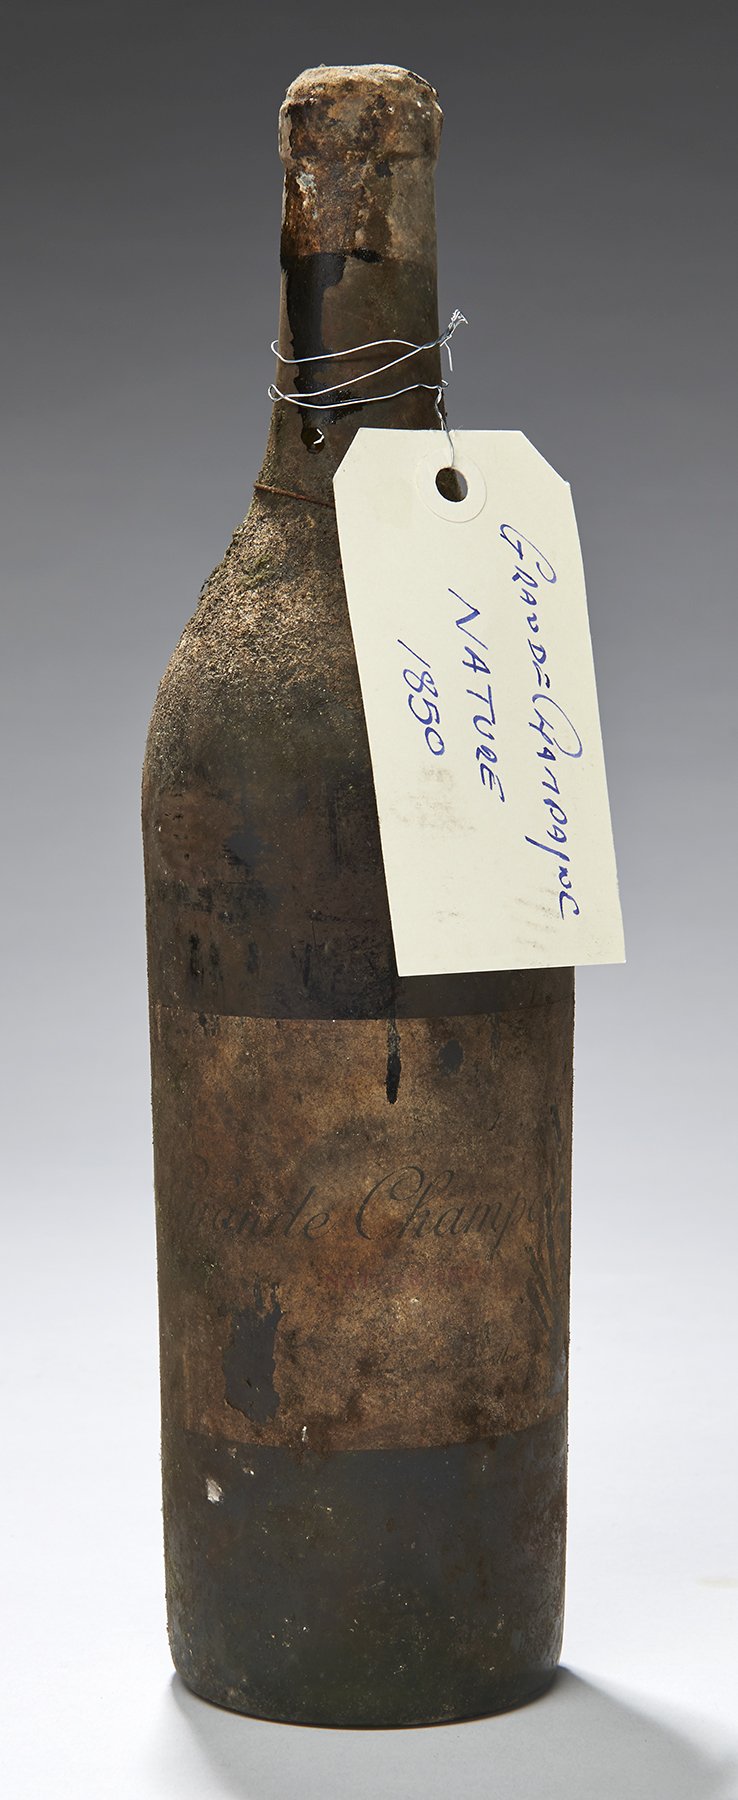 GRANDE CHAMPAGNE
NATURE
1850
Grande Champa